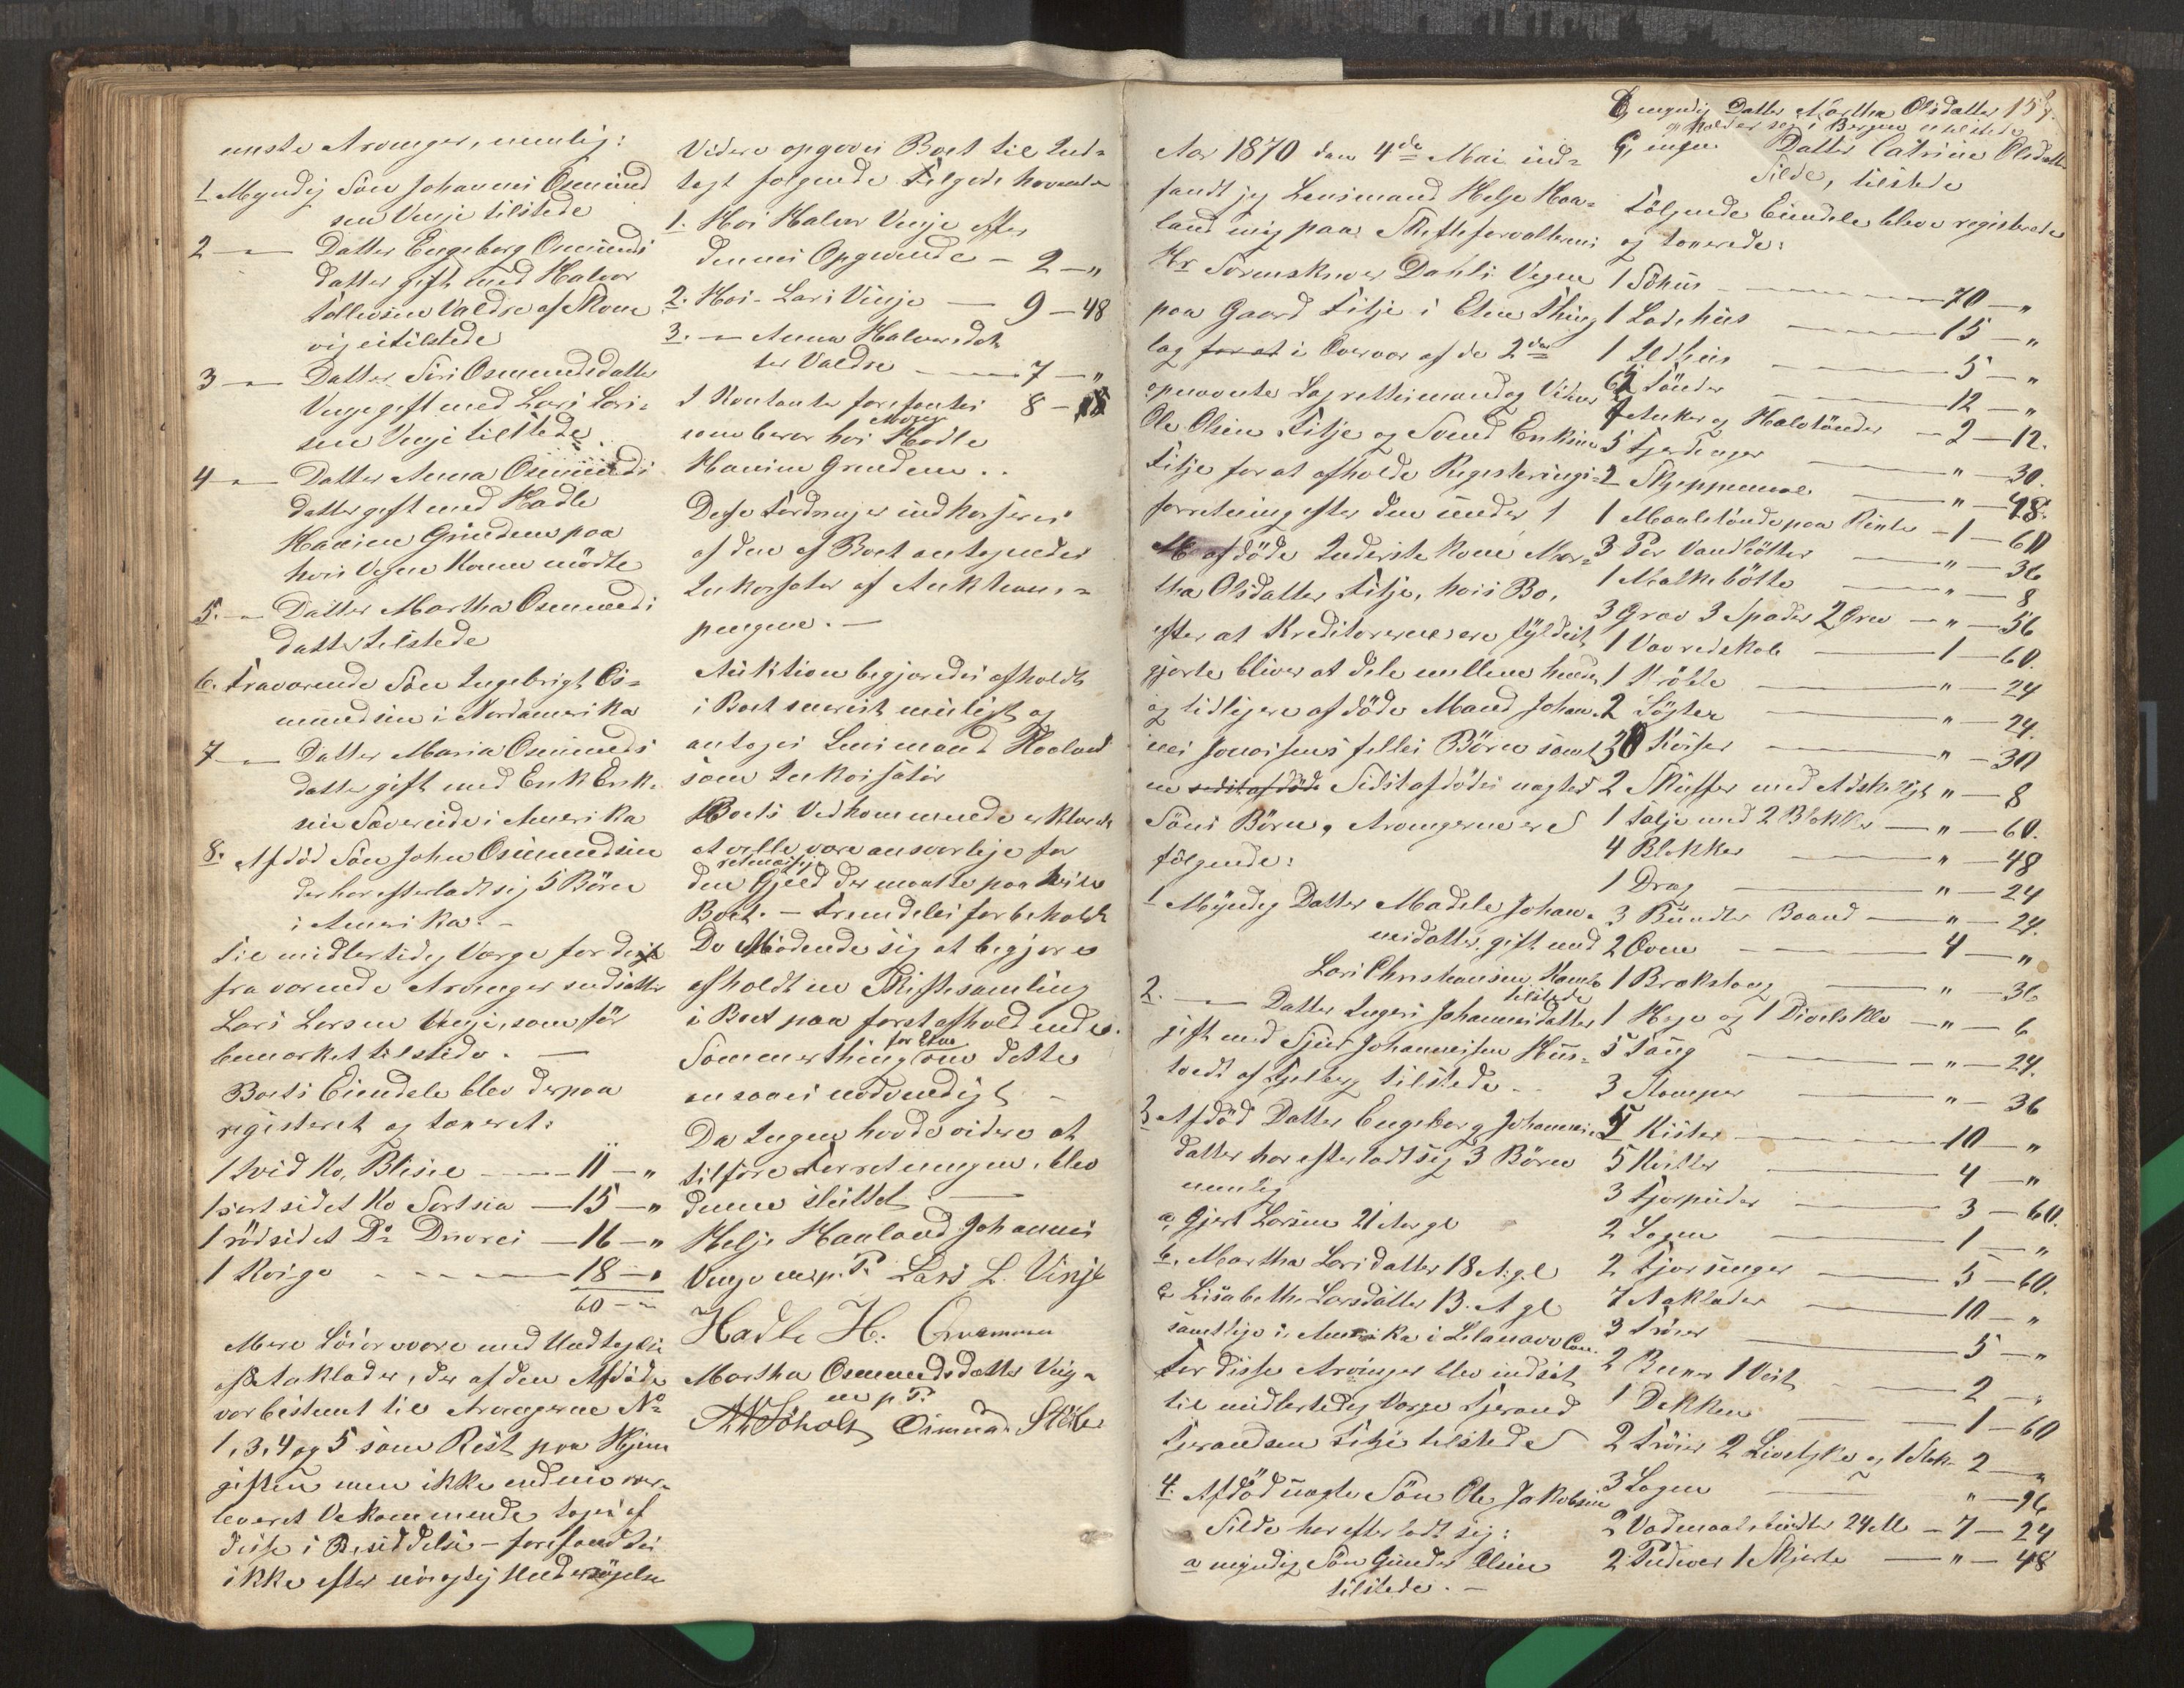 eneste Arvinger, nemlig:
1 Myndig Søn Johannes Osmund
sen Vinje tilstede
2 — Datter Engeborg Osmunds
datter gift med Halvor
Tollevsen Valdre af Skone
vig ei tilstede
3 — Datter Siri Osmundsdatter
Vinge gift med Lars Lars=
sen Vinje tilstede
4 — Datter Anna Osmunds
datter gift med Hadle
Hansen Grindem paa
hvis Vegne Konen mødte
5. — Datter Martha Osmunds
datter tilstede
6. Fraværende Søn Ingebrigt Os=
mundsen i Nordamerika
7 — Datter Maria Osmunds
datter gift med Erik Erik=
sen Sævereide i Amerika
8. Afdød Søn John Osmundsen
der har efterladt sig 5 Børn
i Amerika. –
Til midlertidig Værge for de
fraværende Arvinger indsattes
Lars Larsen Vinje, som før
bemærket tilstede. —
Boets Eiendele blev derpaa
registeret og taxeret:
1 hvid Ko, Blisie — 11 – "
1 sort sidet Ko Sortsia — 15 – "
1 rødsidet Do Dnorei — 16 – "
1 Kvige — 18 – "
60 – "
Mere Løsørevare med Undtagelse
af 8 Aaklæder, der af den Afdøde
var bestemt til Arvingerne No
1, 3, 4 og 5 som Rest paa Hjem
giften men ikke endnu over=
leveret Vekommende toges af
disse i Besiddelse – forefandtes
ikke efter nøiagtig Undersøgelse
Videre opgaves Boet til Ind=
tegt følgende Tilgode havende
1. Hos Halvor Vinje efter
dennes Opgivende – 2 – "
2. Hos – Lars Vinje — 9 – 48
3. — Anna Halvorsdat
ter Valdre — 7 – "
I Kontanter forefantes 8 –
som beror hos Hadle
Hansen Grindem . .
Desse Fordringer indkasseres
af den af Boet antagendes
Inkassator af Auktions=
pengene. —
Auktion begjæredes afholdt
i Boet snarest muligt og
antages Lensmand Haaland
som Inkassatør
Boets Vedkommende erklærede
at ville være ansvarlige for
retmæssig
den Gjeld der maatte paa hvile
Boet. – Fremdeles forbeholdt
De Mødende sig at begjære
afholdt en Skiftesamling
i Boet paa først afholdendes
for Etne
Sommerthing om dette
ansaaes nødvendigt –
Da Ingen havde videre at
tilføre Forretningen, blev
denne sluttet —
Helje Haaland Johannes
Vinje m. p. P. Lars L. Vinje
Hadle H.
Martha Osmundsdatter Vinje
m p. P.
Osmund Støle
Aar 1870 den 4de Mai ind=
fandt jeg Lensmand Helje Haa=
land mig paa Skifteforvalterens
Hr Sorenskriver Dahls Vegne
paa Gaard Fitje i Etne Thing
lag for at i Overvær af de 2de
opnævnte Lagrettesmænd og Vidner
Ole Olsen Fitje og Svend Eriksen
Fitje for at afholde Registerings=
forretning efter den under 1
M afdøde Inderste kone Mar=
tha Olsdatter Fitje, hvis Bo,
efter at Kreditorerne ere fyldest
gjorte bliver at dele mellem hendes
og tidligere afdøde Mand Johan=
nes Jonassens fælles Børn samt
en sidst afdøde Sidstafdødes uægte
Søns Børn, Arvingerne ere
følgende:
1 Myndig Datter Madele Johan=
nesdatter, gift med
Lars Christensen Kambe
tilstede
2. — Datter Ingeri Johannesdatter
gift med Sjur Johannessen Hus=
tvedt af Fjelberg tilstede –
3 Afdød Datter Engeborg Johannes
datter har efterladt sig 3 Børn
nemlig
a, Gjert Larsen 21 Aar gl
b, Martha Larsdatter 18 A. gl
c Lisabethe Larsdatter 13. A gl
samtlige i Amerika i Lelanavo Con.
For disse Arvinger blev indsat
til midlertidig Værge Tjerand
Tjerandsen Fitje tilstede
4. Afdød uægte Søn Ole Jakobsen
Silde har efterladt sig:
a myndig Søn Gunder Olsen
tilstede. –
b, myndig Datter Martha Olsdatter 15
opholder seg i Bergen
c, Datter Catrine Olsdatter
Silde, tilstede
Følgende Eiendele bleve registerede
og taxerede:
1 Søhus — 70 – "
1 Ladehus — 15 – "
1 Ildhus — 5 – "
Tønder — 12 – "
7 Anker og Halvtønder – 2 – 12.
5 Fjerdinger — " – 30.
2 Skjeppemaal — " – 48.
1 Maaltønde paa Rente – 1 – 60
3 Par Vandbøtter — " – 36
1 Malkebøtte — " – 8
3 Grev 3 Spader 2 Grev – " – 56
1 Vævredskab — 1 – 60.
1 Krökke — " – 24
2 Løgter — " – 24.
30 Kasser — " – 30
2 Skuffer med Adskilligt " – 8
1 Talje med 2 Blokker — " – 60.
4 Blokker — " – 48
1 Drag — " – 24
3 Bundter Baand — " – 24.
2 Ovne — 4 – "
1 Brækstang — " – 36
1 Hage og 1 Divelsklo – " – 6
5 Tang — " – 24.
3 Stamper — " – 36
Kister — 10 – "
5 Kitler — 4 – "
3 Fjærpuder — 3 – 60.
2 Lagen — 1 – "
2 Fjærsenger — 5 – 60.
7 Aaklæder — 10 – "
3 Trøier — 5 – "
2 Buxer 1 Vest — 2 – "
1 Dekken — 1 – 60
2 Trøier 2 Livstykke og 1 Stak 2 – "
3 Lagen — " – 96
2 Vadmaalsbundter 24 Al – 7 – 24
2 Pudevar 1 Skjorte — " – 48